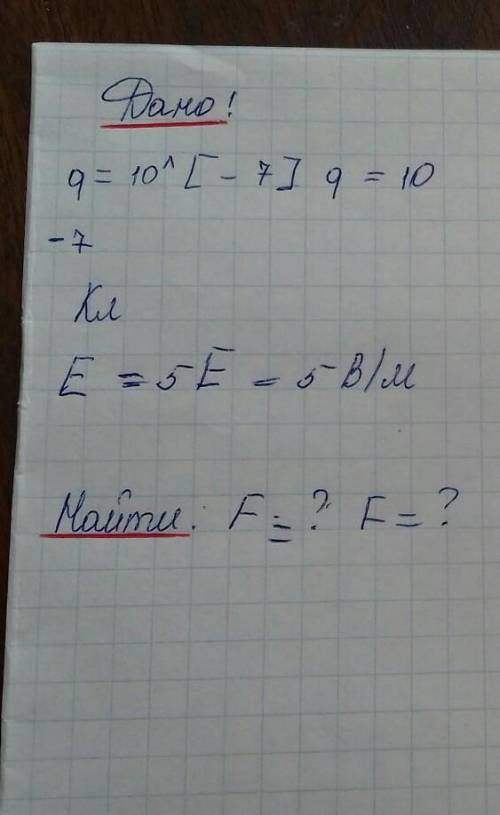 Дано!
q = 10^[-7] q = 10
-7
Кл
E = 5E = 5 В/м
Найти: F = ? F = ?